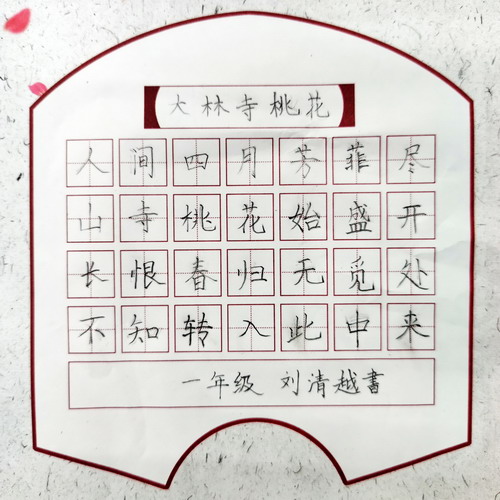 大林寺桃花
人间四月芳菲尽
山寺桃花始盛开
长恨春归无觅处
不知转入此中来
一年级 刘清越书